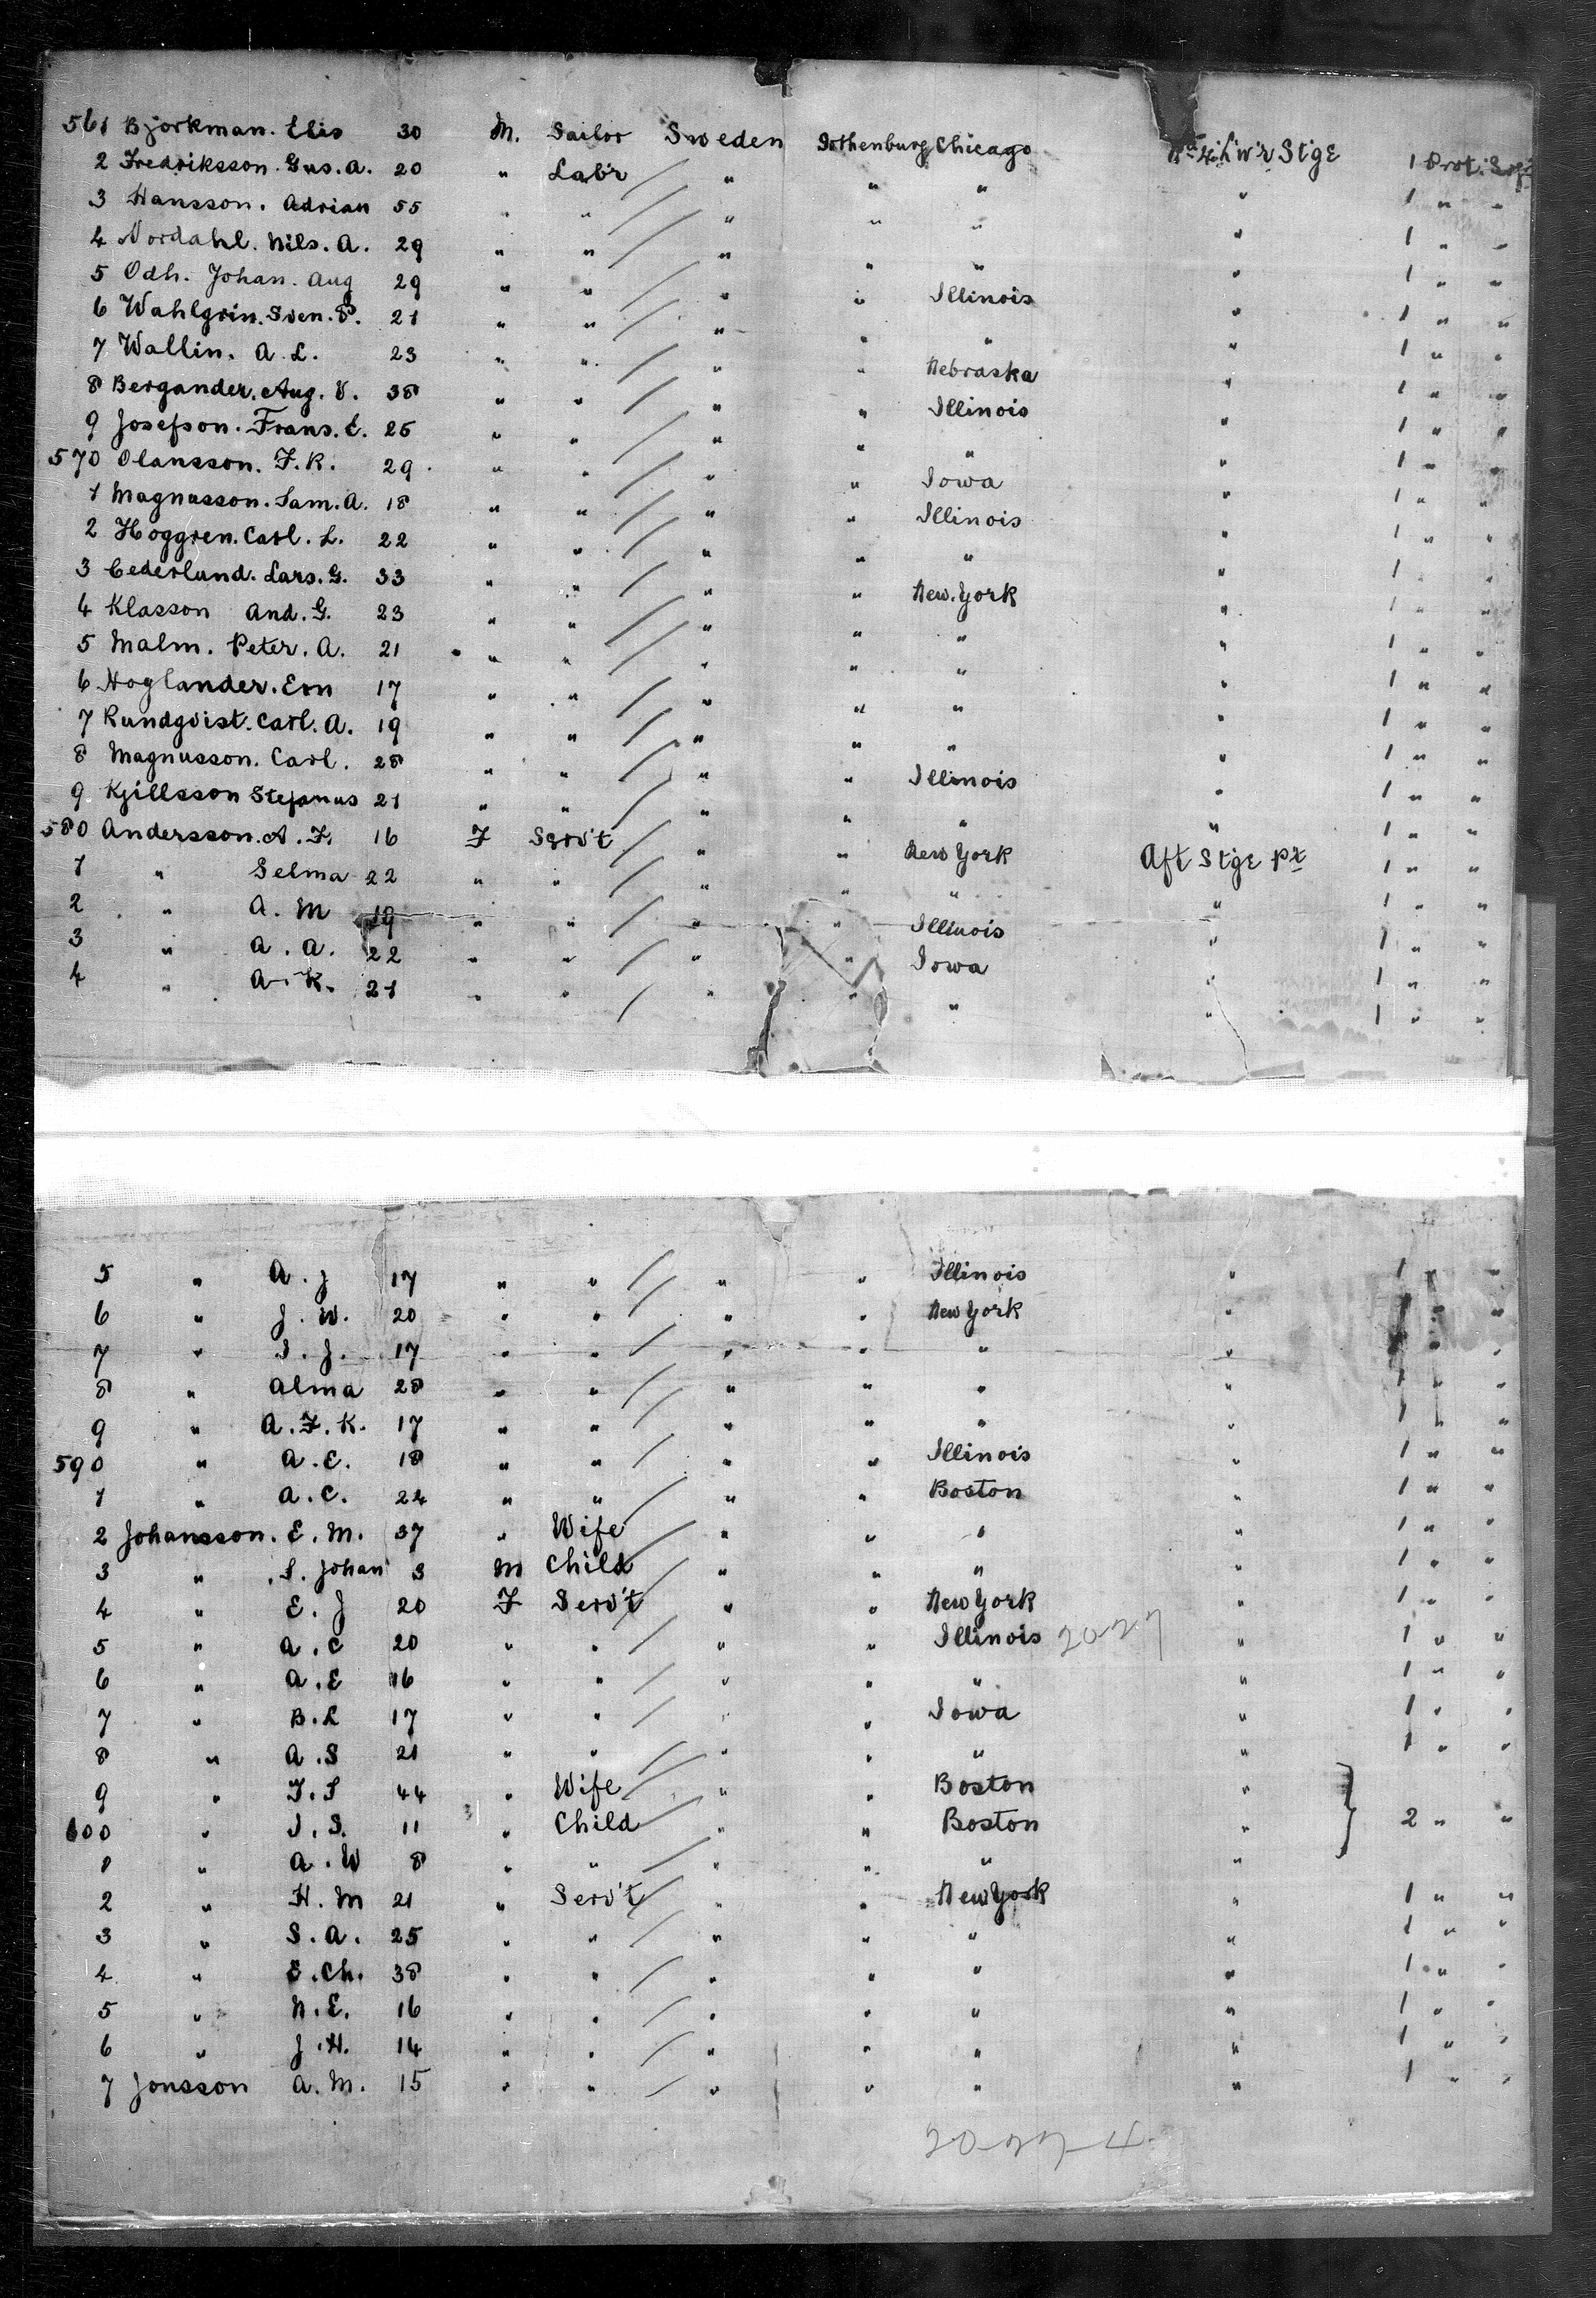 561 Bjorkman. Elis 30 M. Sailor Sweden Gothenburg Chicago No 4 Lw'r Stge 1 Port.
2 Fredriksson. Gus. A. 20 " Lab'r " " " " 1 " "
3 Hansson. Adrian 55 " " " " " " 1 " "
4 Nordahl. Nils. A. 29 " " " " " " 1 " "
5 Odh. Johan. Aug 29 " " " " Illinois " 1 " "
6 Wahlgrin. Sven. P. 21 " " " " " " 1 " "
7 Wallin. A. L. 23 " " " " Nebraska " 1 " "
8 Bergander. Aug. V. 38 " " " " Illinois " 1 " "
9 Josefson. Frans. E. 25 " " " " " " 1 " "
570 Olansson. F. R. 29 " " " " Iowa " 1 " "
1 Magnusson. Sam. A. 18 " " " " Illinois " 1 " "
2 Hoggren. Carl. L. 22 " " " " " " 1 " "
3 Cederlund. Lars. G. 33 " " " " New York " 1 " "
4 Klasson And. G. 23 " " " " " " 1 " "
5 Malm. Peter. A. 21 " " " " " " 1 " "
6 Hoglander. Ern 17 " " " " " " 1 " "
7 Rundqvist. Carl. A. 19 " " " " " " 1 " "
8 Magnusson. Carl. 28 " " " " Illinois " 1 " "
9 Kjillsson Stefanus 21 " " " " " " 1 " "
580 Andersson. A. F. 16 F Serv't " " New York Aft Stge Pt 1 " "
1 " Selma 22 " " " " " " 1 " "
2 " A. M 19 " " " " Illinois " 1 " "
3 " A. A. 22 " " " " Iowa " 1 " "
4 " A. K. 21 " " " " " " 1 " "
5 " A. J 17 " " " " Illinois " 1 " "
6 " J. W. 20 " " " " New York " 1 " "
7 " I. J. 17 " " " " " " 1 " "
8 " Alma 28 " " " " " " 1 " "
9 " A. F. K. 17 " " " " " " 1 " "
590 " A. E. 18 " " " " Illinois " 1 " "
1 " A. C. 24 " " " " Boston " 1 " "
2 Johansson. E. M. 37 " Wife " " " " 1 " "
3 " S. Johan 3 M Child " " " " 1 " "
4 " E. J 20 F Serv't " " New York " 1 " "
5 " A. C 20 " " " " Illinois 2027 " 1 " "
6 " A. E 16 " " " " " " 1 " "
7 " B. L 17 " " " " Iowa " 1 " "
8 " A. S 21 " " " " " " 1 " "
9 " F. S 44 " Wife " " Boston "
600 " I. S. 11 " Child " " Boston " 2 " "
1 " A. W 8 " " " " " "
2 " H. M 21 " Serv't " " New York " 1 " "
3 " S. A. 25 " " " " " " 1 " "
4 " E. Ch. 38 " " " " " " 1 " "
5 " N. E. 16 " " " " " " 1 " "
6 " J. H. 14 " " " " " " 1 " "
7 Jonsson A. M. 15 " " " " " " 1 " "